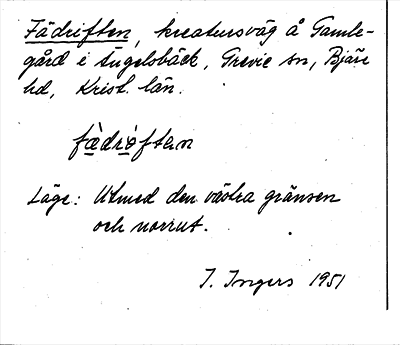 Fädriften, kreatursväg å Gamle-
gård i Ängelsbäck, Grevie sn, Bjäre
hd, Krist. län.
fæ̀driftan
Läge: Utmed den västra gränsen
och norrut.
I. Ingers 1951